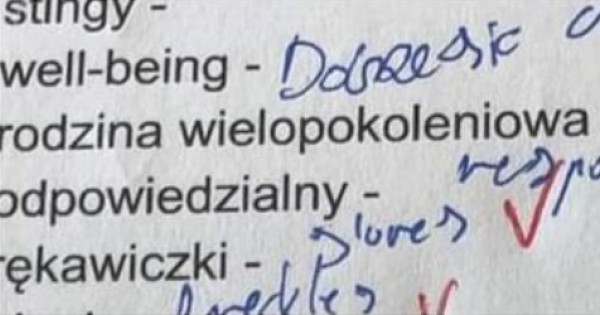 stingy -
well-being - Dobrze się
rodzina wielopokoleniowa
odpowiedzialny - respo
rękawiczki - gloves